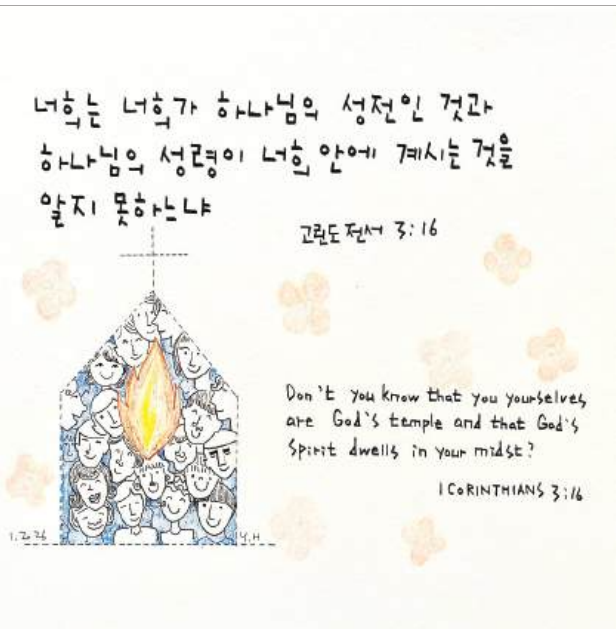 너희는 너희가 하나님의 성전인 것과
하나님의 성령이 너희 안에 계시는 것을
알지 못하느냐
고린도전서 3:16
Don't you know that you yourselves
are God's temple and that God's
Spirit dwells in your midst?
1 CORINTHIANS 3:16
Y.H